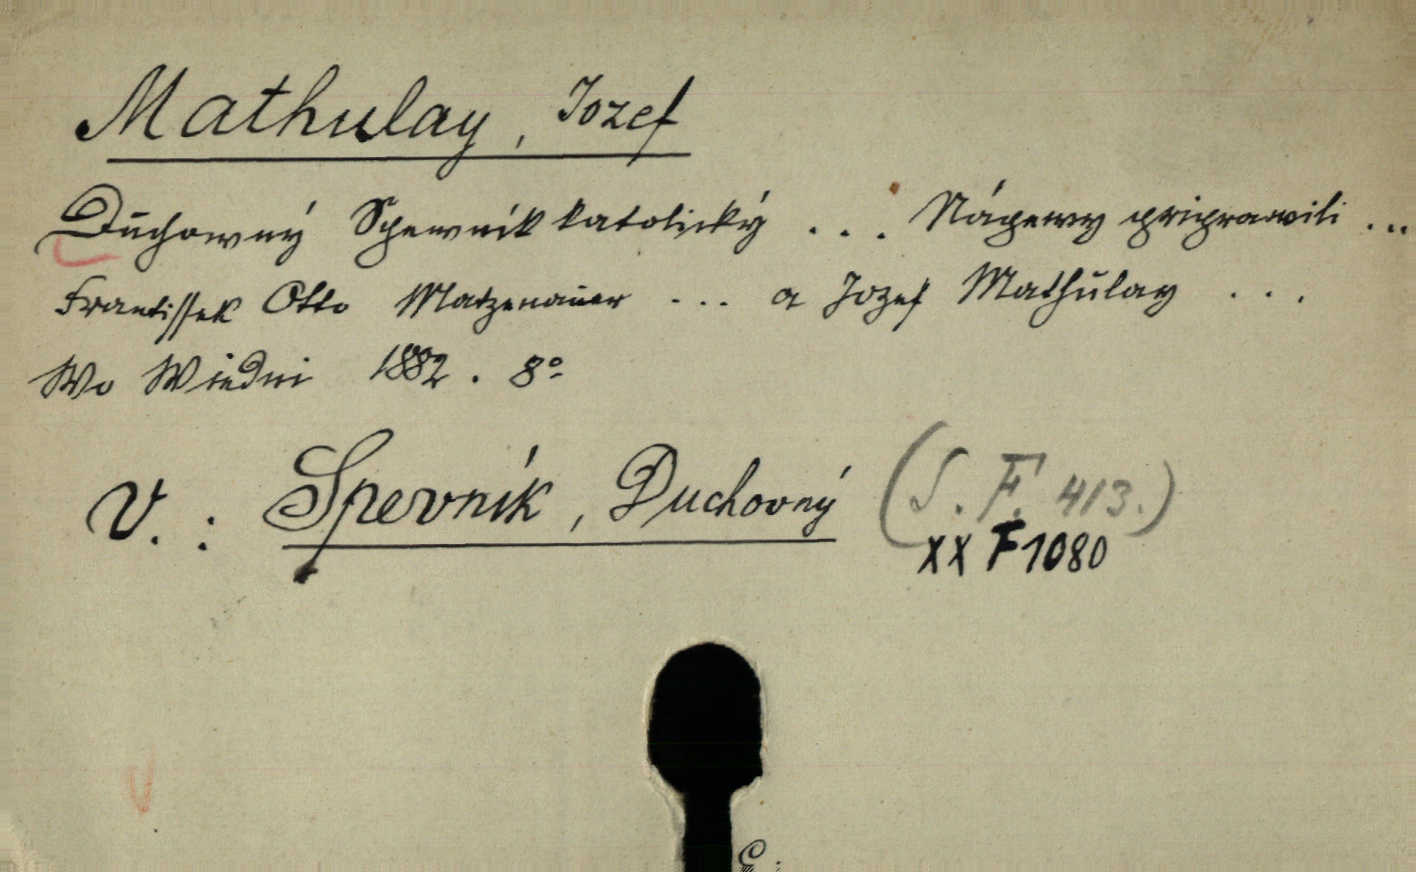 Mathulay, Jozef
Duchowný Spewník katolický ... Nápewy priprawili ...
Frantissek Otto Matzenauer ... a Jozef Mathulay ...
Wo Wiedni 1882. 8º
V.: Spevník, Duchovný (S. F. 413.)
XX F 1080